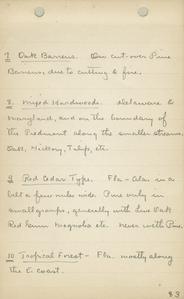 7. Oak Barrens. On cut-over Pine
Barrens, due to cutting & fire.
8. Mixed Hardwoods. Delaware &
Maryland, and on the boundary of
the Piedmont along the smaller streams.
Oak, Hickory, Tulip, etc.
9. Red Cedar Type. Fla - Ala. in a
belt a few miles wide. Pure only in
small groups, generally with Live Oak
Red Gum Magnolia etc. Never with Pine.
10. Tropical Forest - Fla. mostly along
the E. coast.
83